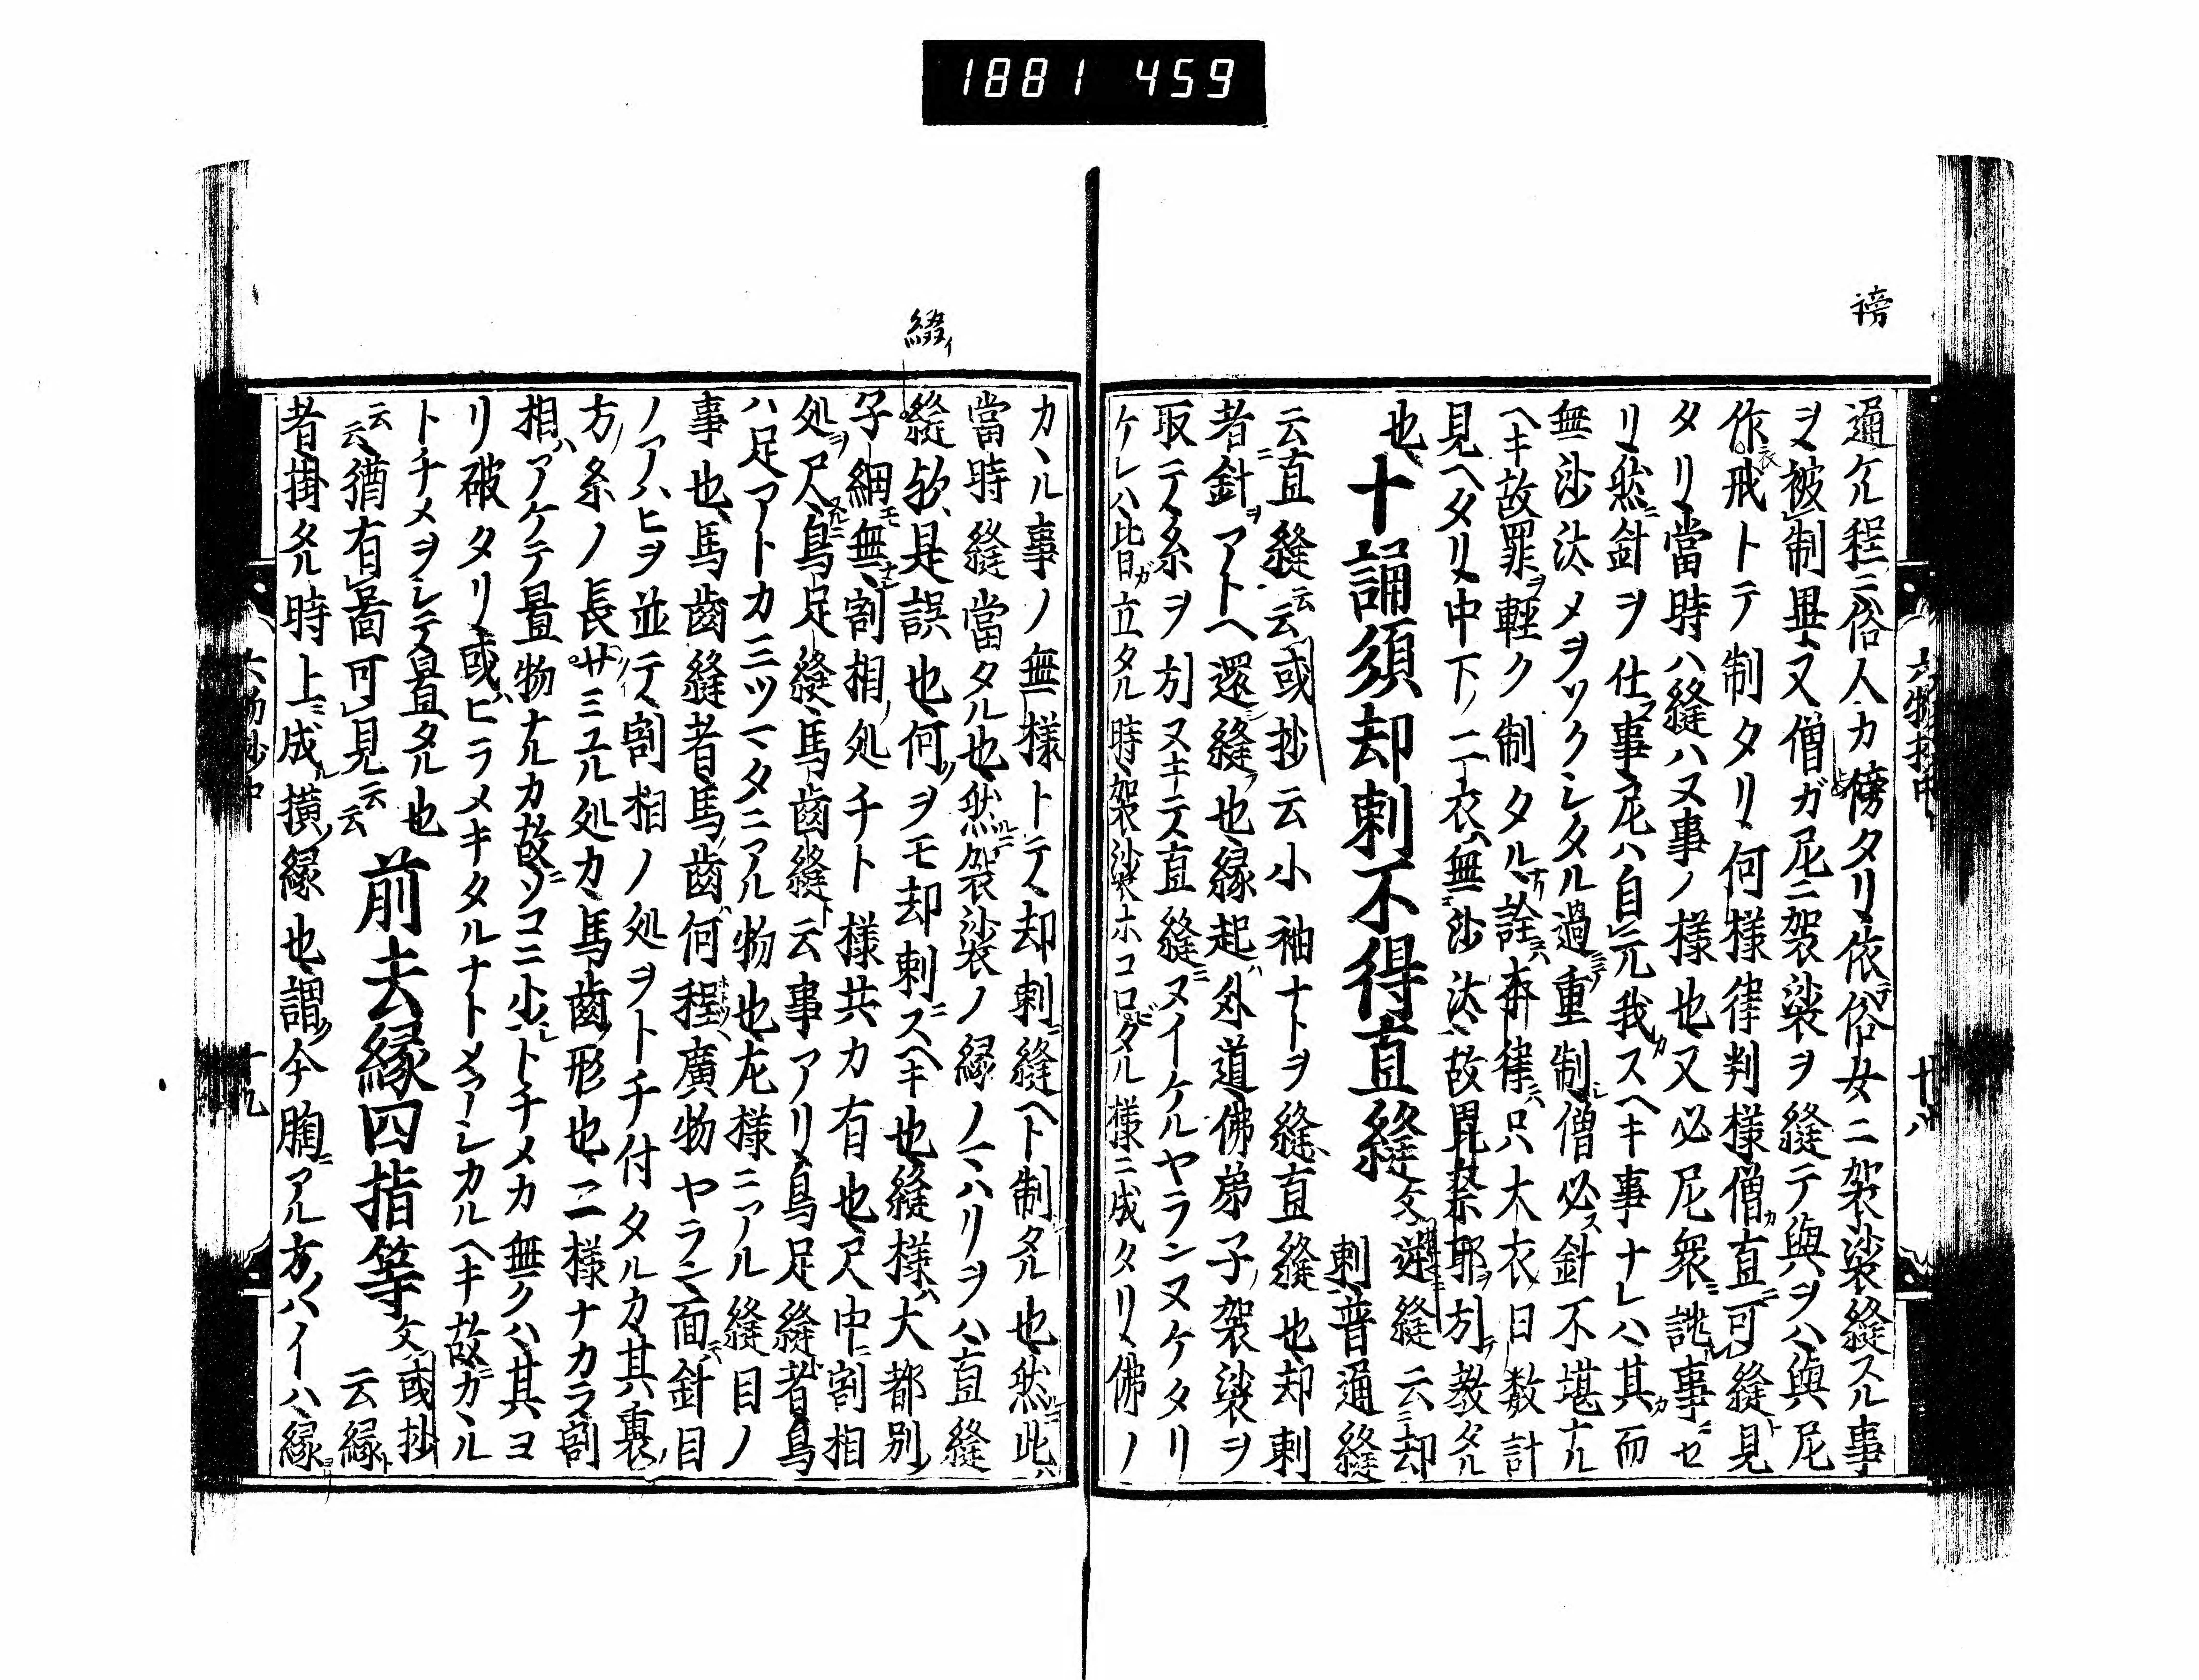 1881 459
謗
通ケル程ニ俗人カ傍タリ依テ俗女ニ袈裟縫スル事
ヲ被制畢又僧ガ尼ニ袈裟ヲ縫テ與ヲハ與尼
作衣戒トテ制タリ何様律判様僧カ直ニ可縫ト見
タリ當時ハ縫ハヌ事ノ様也又必尼衆ニ誂事ニセ
リ然ニ針ヲ仕フ事尼ハ自元我カスヘキ事ナレハ其カ而
無沙汰メヲソクシタル過ニテ重制レ僧必ス針不堪ナル
ヘキ故罪ヲ輕ク制タル詮ハ律ハ只大衣ノ日数計
見ヘタリ中下ノ二衣ハ無沙汰故毘奈耶ヲ引テ教タル
也十誦須却刺不得直縫文逆縫云ニ却
刺普通縫
云直縫云云或抄云小袖ナトヲ縫直縫也却刺
者針ヲアトヘ還縫フ也縁起ハ外道佛弟子ノ袈裟ヲ
取テ糸ヲ引ヌキテ直縫ニヌイケルヤランヌケタリ
ケレハ比日ガ立タル時袈裟ホコロビタル様ニ成タリ佛ノ
六物抄中
廿八
綴イ
カヽル事ノ無様トテ却刺ニ縫ヘト制タル也然ニ此ハ
當時縫當タル也然ルニ袈裟ノ縁ノマハリヲハ直縫
縫欤是誤也何ヲモ却刺ニスヘキ也縫様ハ大都別ノ
子細モ無ナシ割相ノ処チト様共カ有也尺中ニ割相
処ヲ尺スルニ鳥足縫馬齒縫ト云事アリ鳥足縫者鳥
ハ足アトカ三ツマタニアル物也左様ニアル縫目ノ
事也馬齒縫者馬ノ齒ハ何程廣物ヤラン面ハ針目
ノアハヒヲ並テ割相ノ処ヲトチ付タルカ其裏ノ
方ノ糸ノ長サミユル処カ馬齒ノ形也二様ナカラ割
相ハアケテ置物ナルカ故ニソコニ小トチメカ無クハ其ヨ
リ破タリ或ハヒラメキタルナトメアシカルヘキ故ニカヽル
トチメヲシテ置タル也前去縁四指等文或抄
云縁ト
云云猶有啚可見云云
者掛タル時上ニ成ル横ノ縁也謂ク今胸ニアル方ノハイハ縁ヨリ
六物抄中
十九